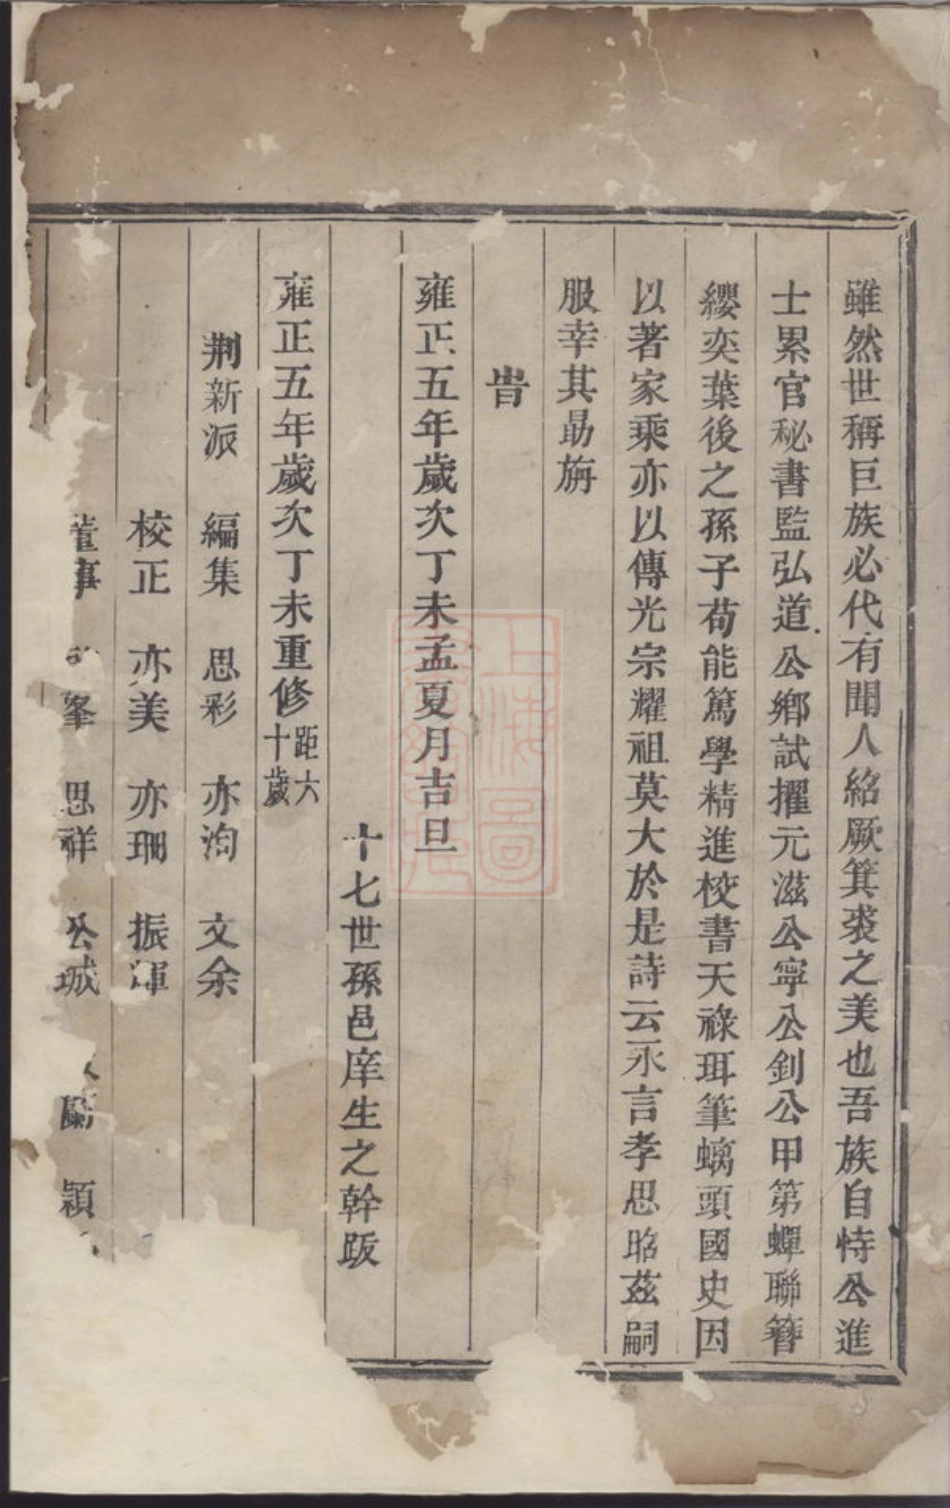 雖然世稱巨族必代有聞人紹厥箕裘之美也吾族自恃公進
士累官秘書監弘道公鄉試擢元滋公寧公釗公甲第蟬聯簪
纓奕葉後之孫子苟能篤學精進校書天祿珥筆螭頭國史因
以著家乘亦以傳光宗耀祖莫大於是詩云永言孝思昭茲嗣
服幸其勗旃
旹
雍正五年歲次丁未孟夏月吉旦
十七世孫邑庠生之幹跋
雍正五年歲次丁未重修距六十歲
荆新派 編集 思彩 亦洵 文余
校正 亦美 亦珊 振渾
董事 峯 思祥 公城 穎